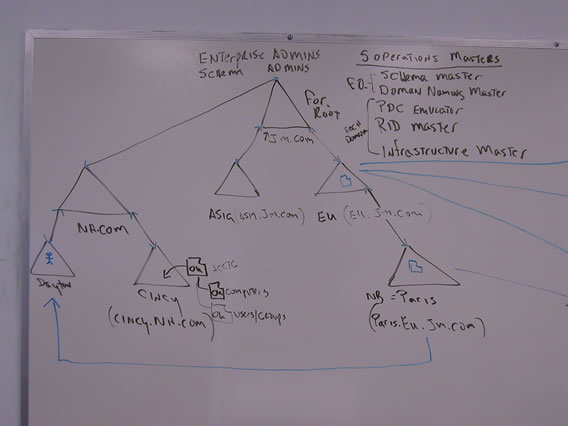 ENTERPRISE ADMINS
SCHEMA ADMINS
5 OPERATIONS MASTERS
SCHEMA MASTER
DOMAIN NAMING MASTER
FOR. ROOT
EACH DOMAIN
PDC EMULATOR
RID MASTER
INFRASTRUCTURE MASTER
Jm.com
ASIA
EU (EU.Jm.com)
NH.COM
DAYTON
CINCY
(CINCY.NH.COM)
OU
OU COMPUTERS
OU USERS/GROUPS
NB = PARIS
(PARIS.EU.Jm.com)